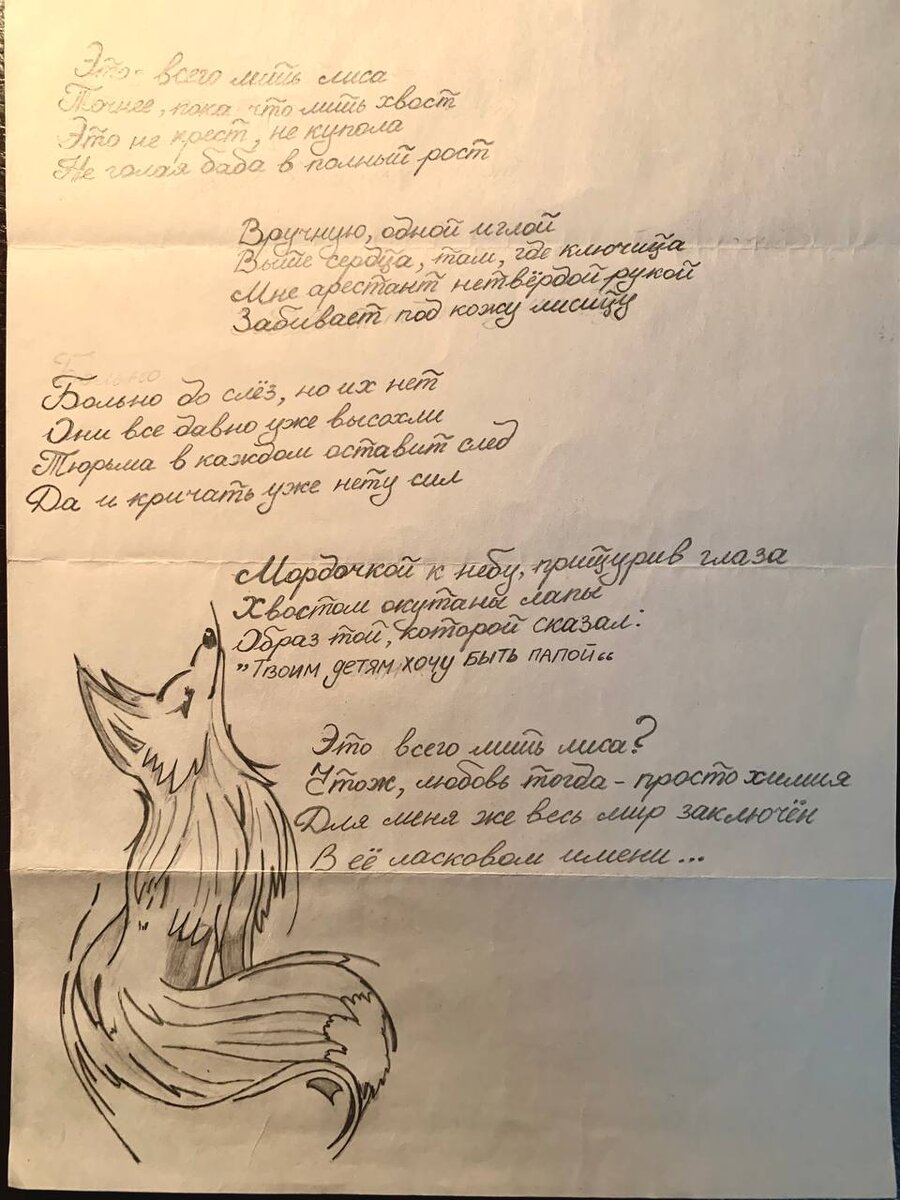 Это - всего лишь лиса
Точнее, пока что лишь хвост
Это не крест, не купола
Не голая баба в полный рост
Вручную, одной иглой
Выше сердца, там, где ключица
Мне арестант нетвёрдой рукой
Забивает под кожу лисицу
Больно
Больно до слёз, но их нет
Они все давно уже высохли
Тюрьма в каждом оставит след
Да и кричать уже нету сил
Мордочкой к небу, прищурив глаза
Хвостом окутаны лапы
Образ той, которой сказал:
"Твоим детям хочу быть папой"
Это всего лишь лиса?
Чтож, любовь тогда - просто химия
Для меня же весь мир заключён
В её ласковом имени...